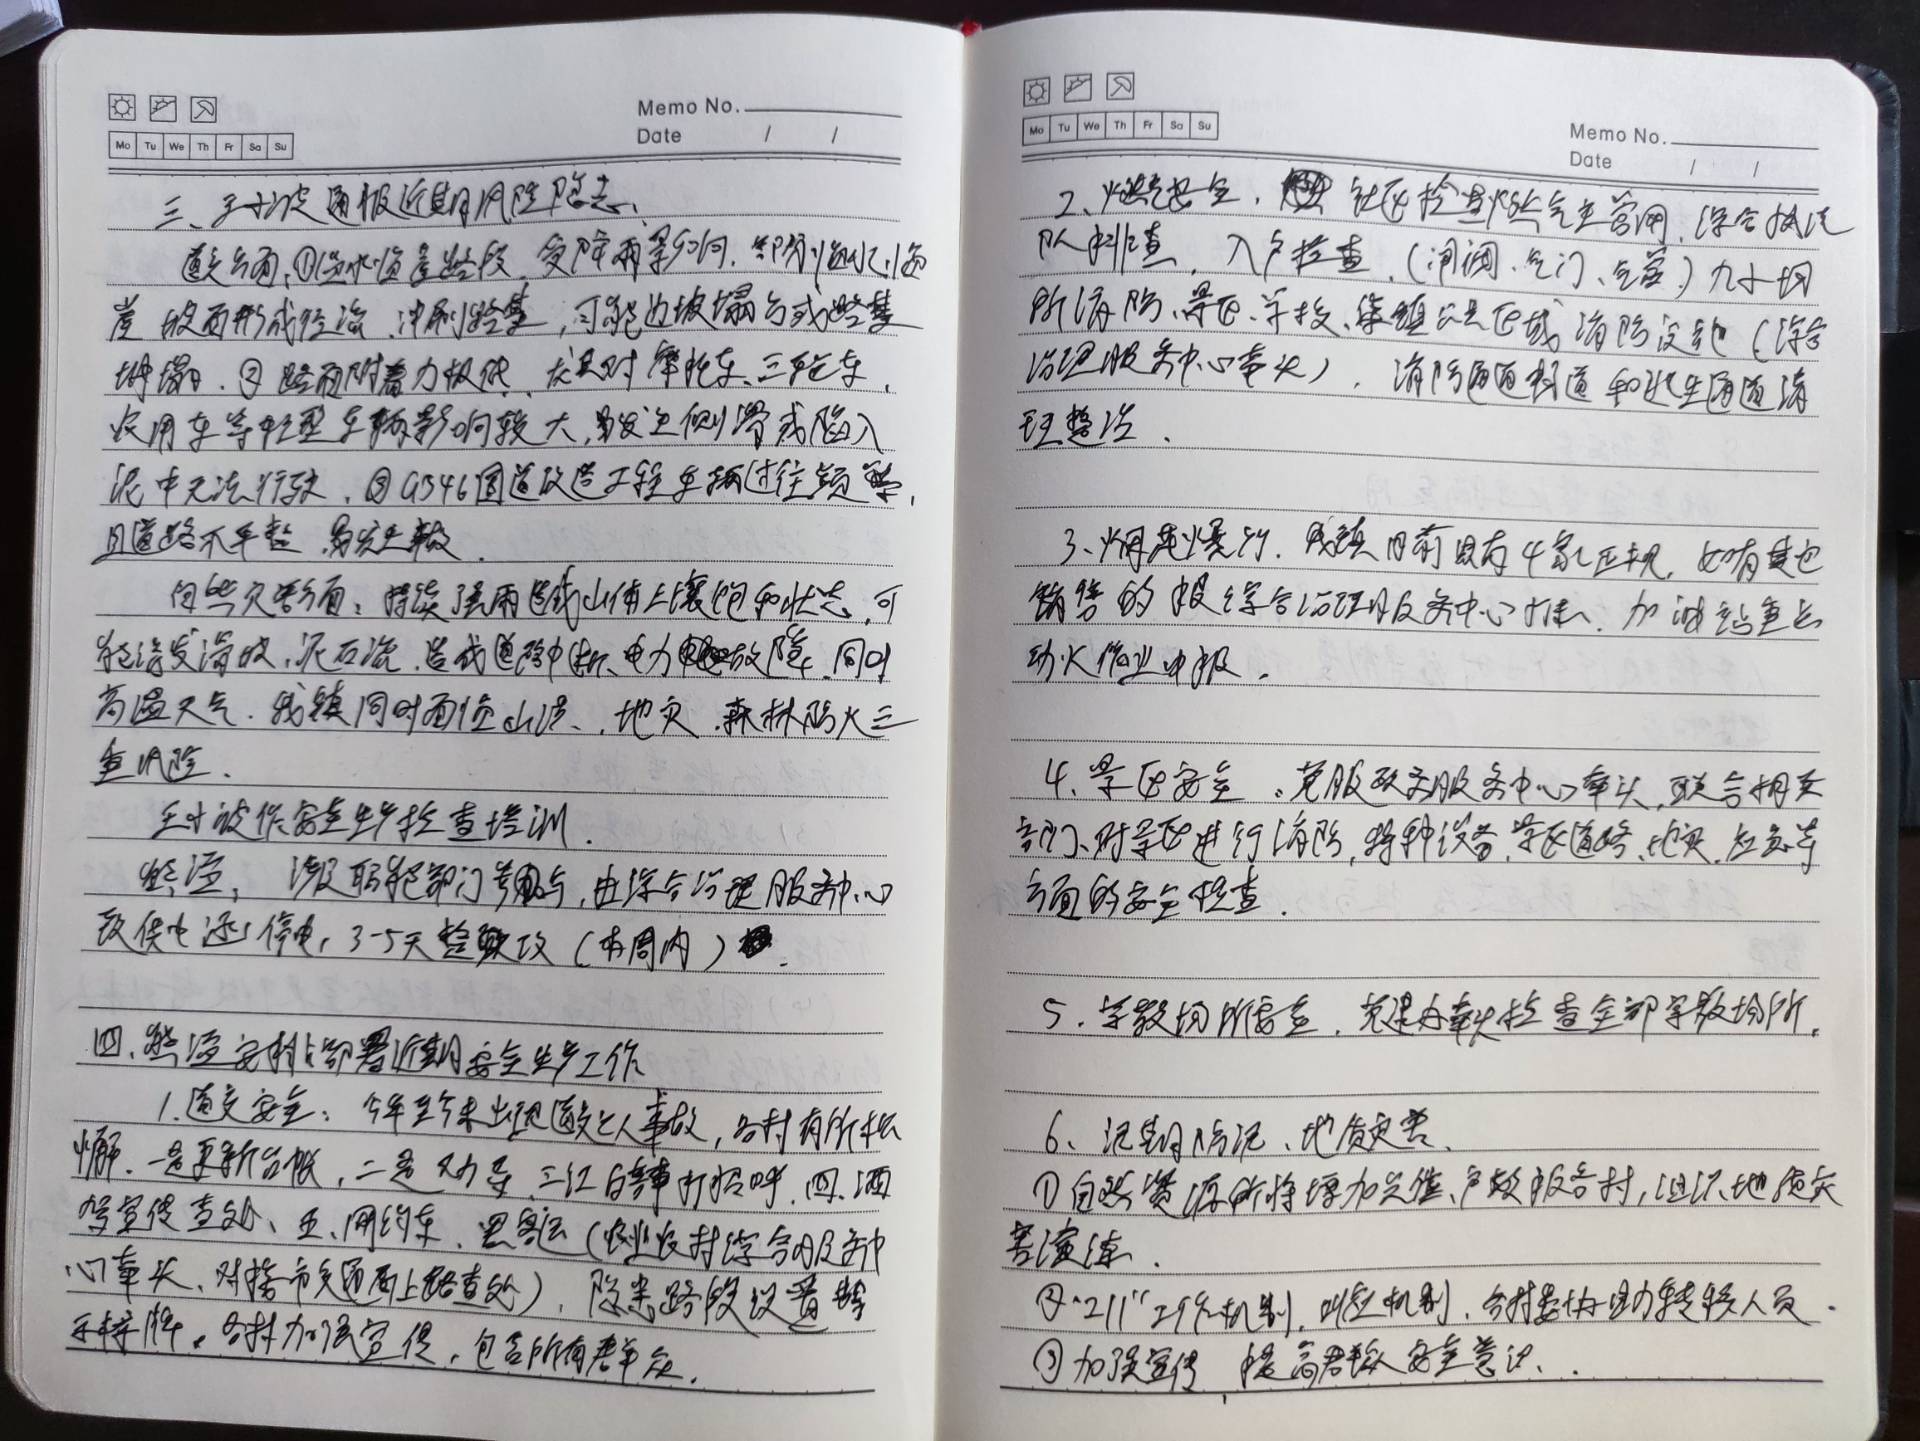 Memo No.
Date / /
Mo Tu We Th Fr Sa Su
三、王小波通报近期风险隐患、
道交方面,①临水临崖路段,受降雨影响,部分临水、临
崖坡面形成径流,冲刷路基,可能边坡塌方或路基
坍塌。②路面附着力极低,尤其对摩托车、三轮车、
农用车等轻型车辆影响较大,易发生侧滑或陷入
泥中无法行驶。③G346国道改造工程车辆过往频繁,
且道路不平整,易发生事故。
自然灾害方面:持续强雨造成山体土壤饱和状态,可
能诱发滑坡、泥石流,造成道路中断、电力故障。同时
高温天气,我镇同时面临山洪、地灾、森林防火三
重风险。
王小波作安全生产检查培训。
涉及职能部门参与,由综合治理服务中心
3-5天整改(本周内)
四、安排部署近期安全生产工作
1.道交安全:今年至今未出现道交亡人事故,各村有所松
懈。一是更新台帐,二是劝导,三红白喜事打招呼,四、酒
驾宣传查处、五、网约车、黑客运(农业农村综合服务中
心牵头,对接市交通局上路查处),隐患路段设置警
示标牌。各村加强宣传,包含所有群众。
Memo No.
Date / /
Mo Tu We Th Fr Sa Su
2、燃气安全,社区检查燃气主管网,综合执法
队排查,入户检查,(闸阀、气门、气管)九小场
所消防、景区、学校、集镇公共区域消防设施(综合
治理服务中心牵头),消防通道和逃生通道清
理整治。
3、烟花爆竹,我镇目前只有4家正规,如有其他
销售的报综合治理服务中心,加油站重点
动火作业申报。
4、景区安全。党服政务服务中心牵头,联合相关
部门、对景区进行消防,特种设备,景区道路、地灾,应急等
方面的安全检查。
5.宗教场所安全,党建办牵头检查全部宗教场所。
6、汛期防汛、地质灾害、
①自然资源所将增加点位、户数报各村,组织地质灾
害演练。
②“211”叫应机制,叫应机制,各村要协助转移人员。
③加强宣传,提高群众安全意识、